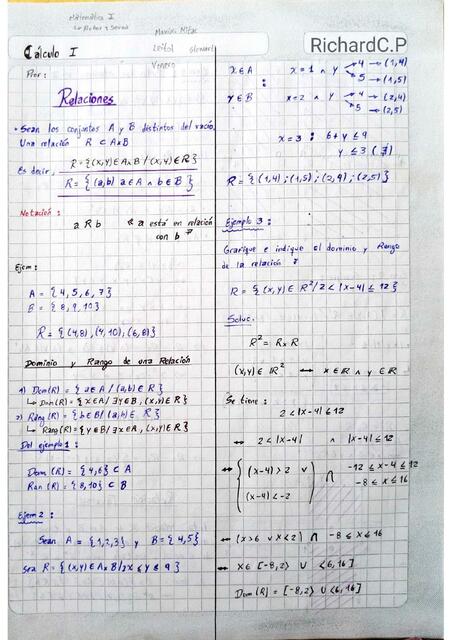 Matemática I
Cálculo I
Por:
Venero
Relaciones
• Sean los conjuntos A y B distintos del vacío.
Una relación R ⊂ AxB
Es decir, R = {(x,y) ∈ AxB / (x,y) ∈ R}
R = {(a,b) a ∈ A ∧ b ∈ B}
Notación:
a R b « a está en relación
con b »
Ejem:
A = {4, 5, 6, 7}
B = {8, 9, 10}
R = {(4,8), (4,10), (6,8)}
Dominio y Rango de una Relación
1) Dom(R) = {a ∈ A / (a,b) ∈ R}
↳ Dom(R) = {x ∈ A / ∃ y ∈ B, (x,y) ∈ R}
2) Rang(R) = {b ∈ B / (a,b) ∈ R}
↳ Rang(R) = {y ∈ B / ∃ x ∈ A, (x,y) ∈ R}
Del ejemplo 1:
Dom (R) = {4,6} ⊂ A
Ran (R) = {8,10} ⊂ B
Ejem 2:
Sean A = {1,2,3} y B = {4,5}
Sea R = {(x,y) ∈ AxB / 2x ≤ y ≤ 9}
RichardC.P
x ∈ A : x = 1 ∧ y 4 → (1,4)
5 → (1,5)
y ∈ B x = 2 ∧ y 4 → (2,4)
5 → (2,5)
x = 3 : 6 + y ≤ 9
y ≤ 3 (∄)
R = {(1,4); (1,5); (2,4); (2,5)}
Ejemplo 3:
Grafique e indique el dominio y Rango
de la relación
R = {(x,y) ∈ R²/2 < |x-4| ≤ 12}
Soluc.
R² = R x R
(x,y) ∈ R² ↔ x ∈ R ∧ y ∈ R
Se tiene:
2 < |x-4| ≤ 12
↔ 2 < |x-4| ∧ |x-4| ≤ 12
↔ { (x-4) > 2 ∨ ∩ -12 ≤ x-4 ≤ 12
(x-4) < -2 -8 ≤ x ≤ 16
↔ (x>6 ∨ x<2) ∩ -8 ≤ x ≤ 16
↔ x ∈ [-8,2> ∪ <6,16]
Dom (R) = [-8,2> ∪ <6,16]